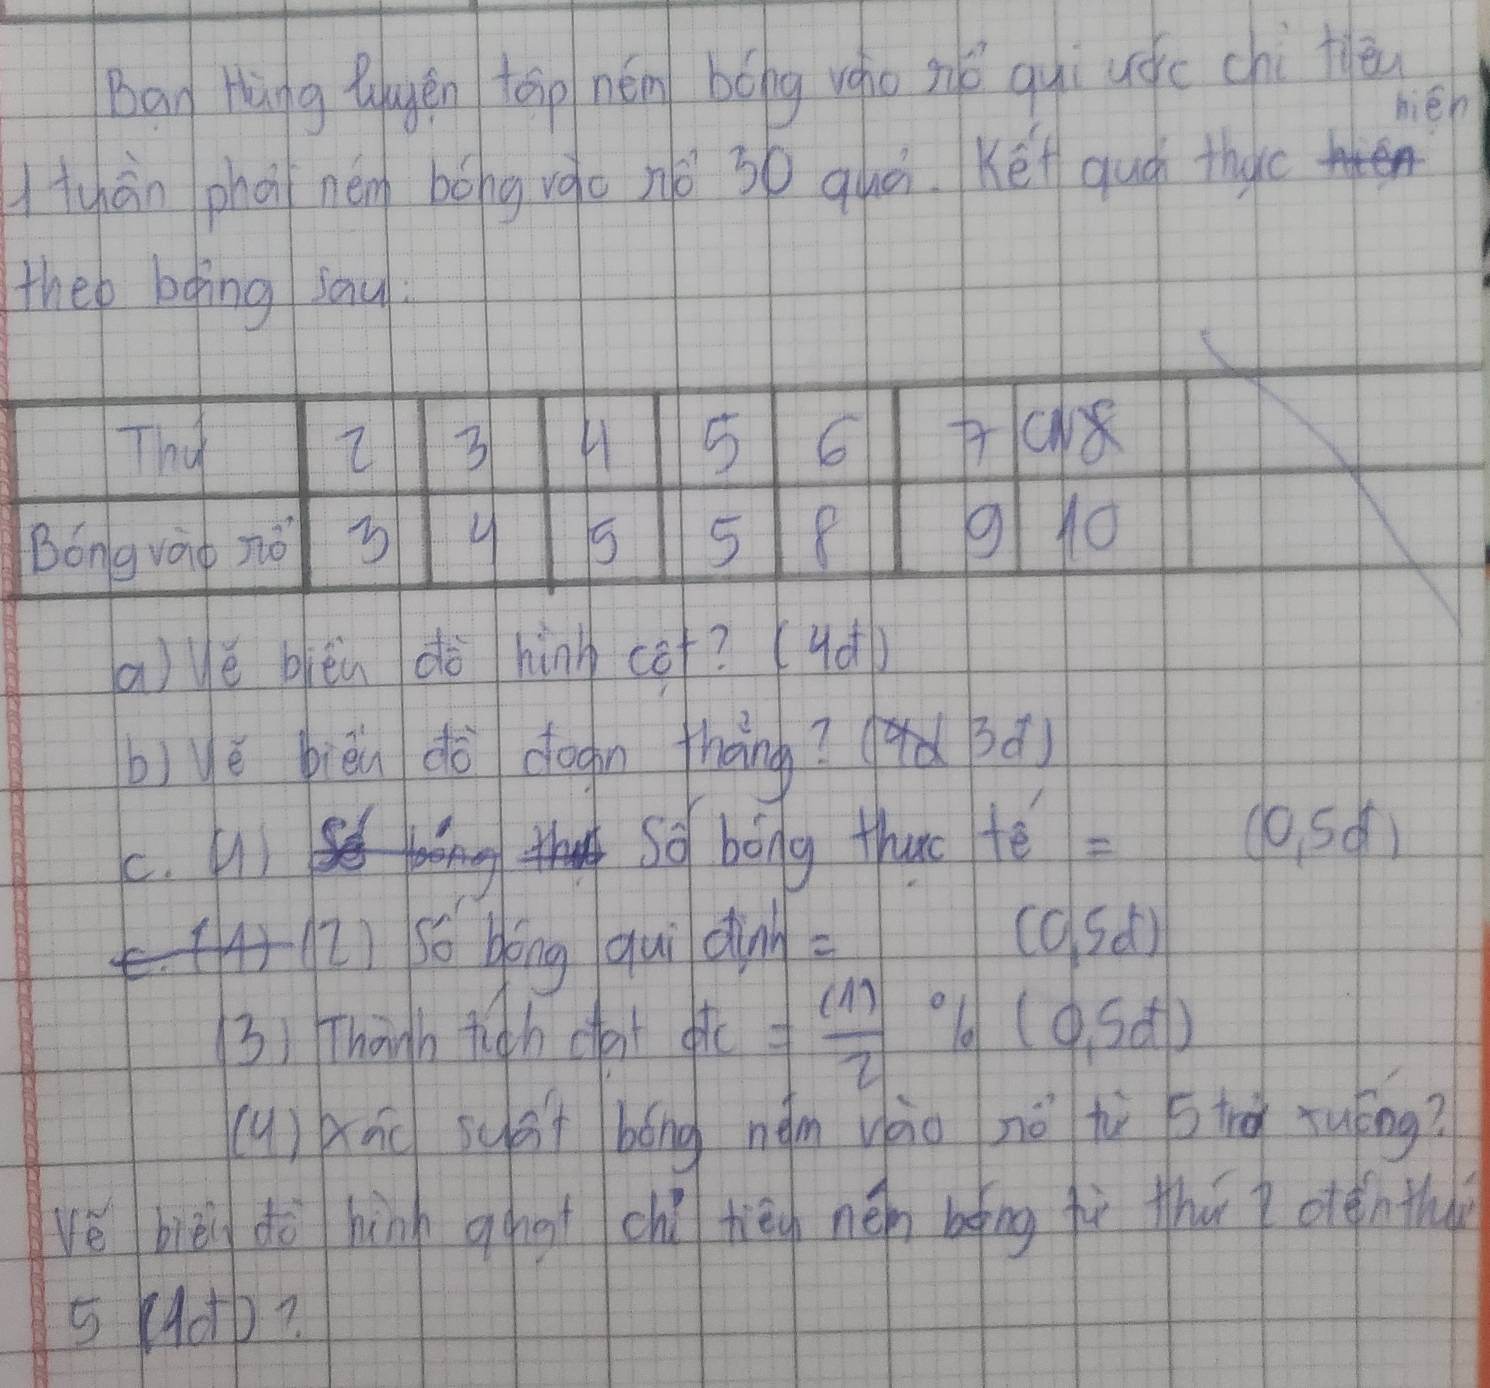 Bạn Hùng luyện tập ném bóng vào rổ qui ước chỉ tiêu
1 tuần phải ném bóng vào rổ 30 quả. Kết quả thực hiện
theo bảng sau:
Thứ 2 3 4 5 6 7 CN8
Bóng vào rổ 3 4 5 5 8 9 10
a) Vẽ biểu đồ hình cột? (4đ)
b) Vẽ biểu đồ đoạn thẳng? (3đ)
c. (1) Số bóng thực tế = (0,5đ)
(2) Số bóng qui định = (0,5đ)
(3) Thành tích đạt đc = (1)/2 % (0,5đ)
(4) Xác suất bóng ném vào rổ từ 5 trở xuống?
Vẽ biểu đồ hình quạt chỉ tiêu ném bóng từ thứ 2 đến thứ
5 (1đ)?